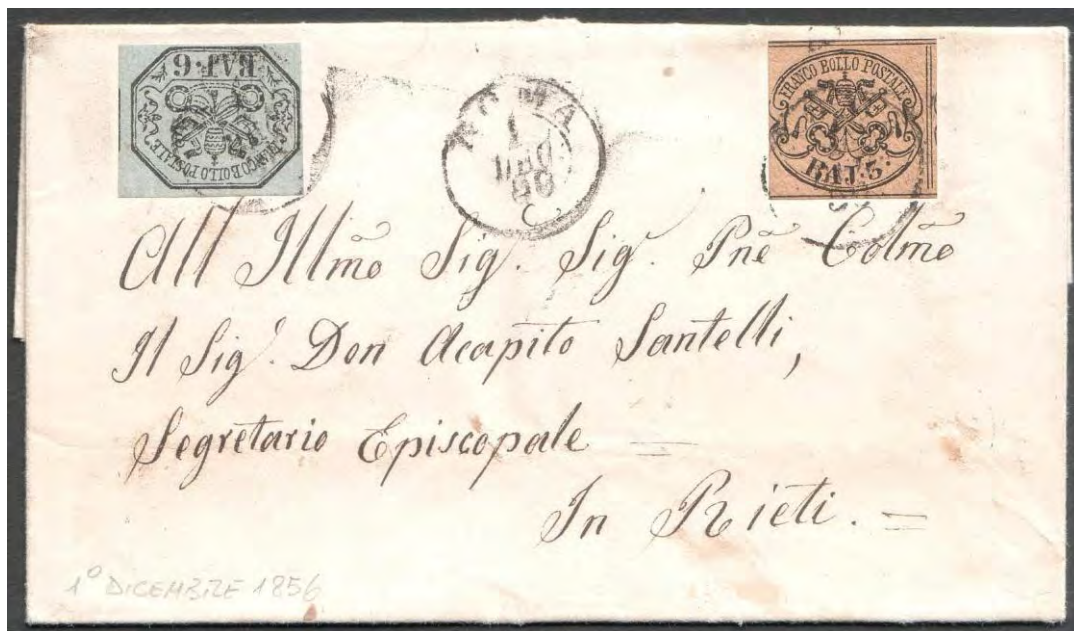 BAJ. 6
FRANCO BOLLO POSTALE
ROMA
1
DEC
56
FRANCO BOLLO POSTALE
BAJ. 5:
All Illmo Sig. Sig. Pne Colmo
Il Sig. Don Acapito Santelli,
Segretario Episcopale =
In Rieti. =
1° DICEMBRE 1856